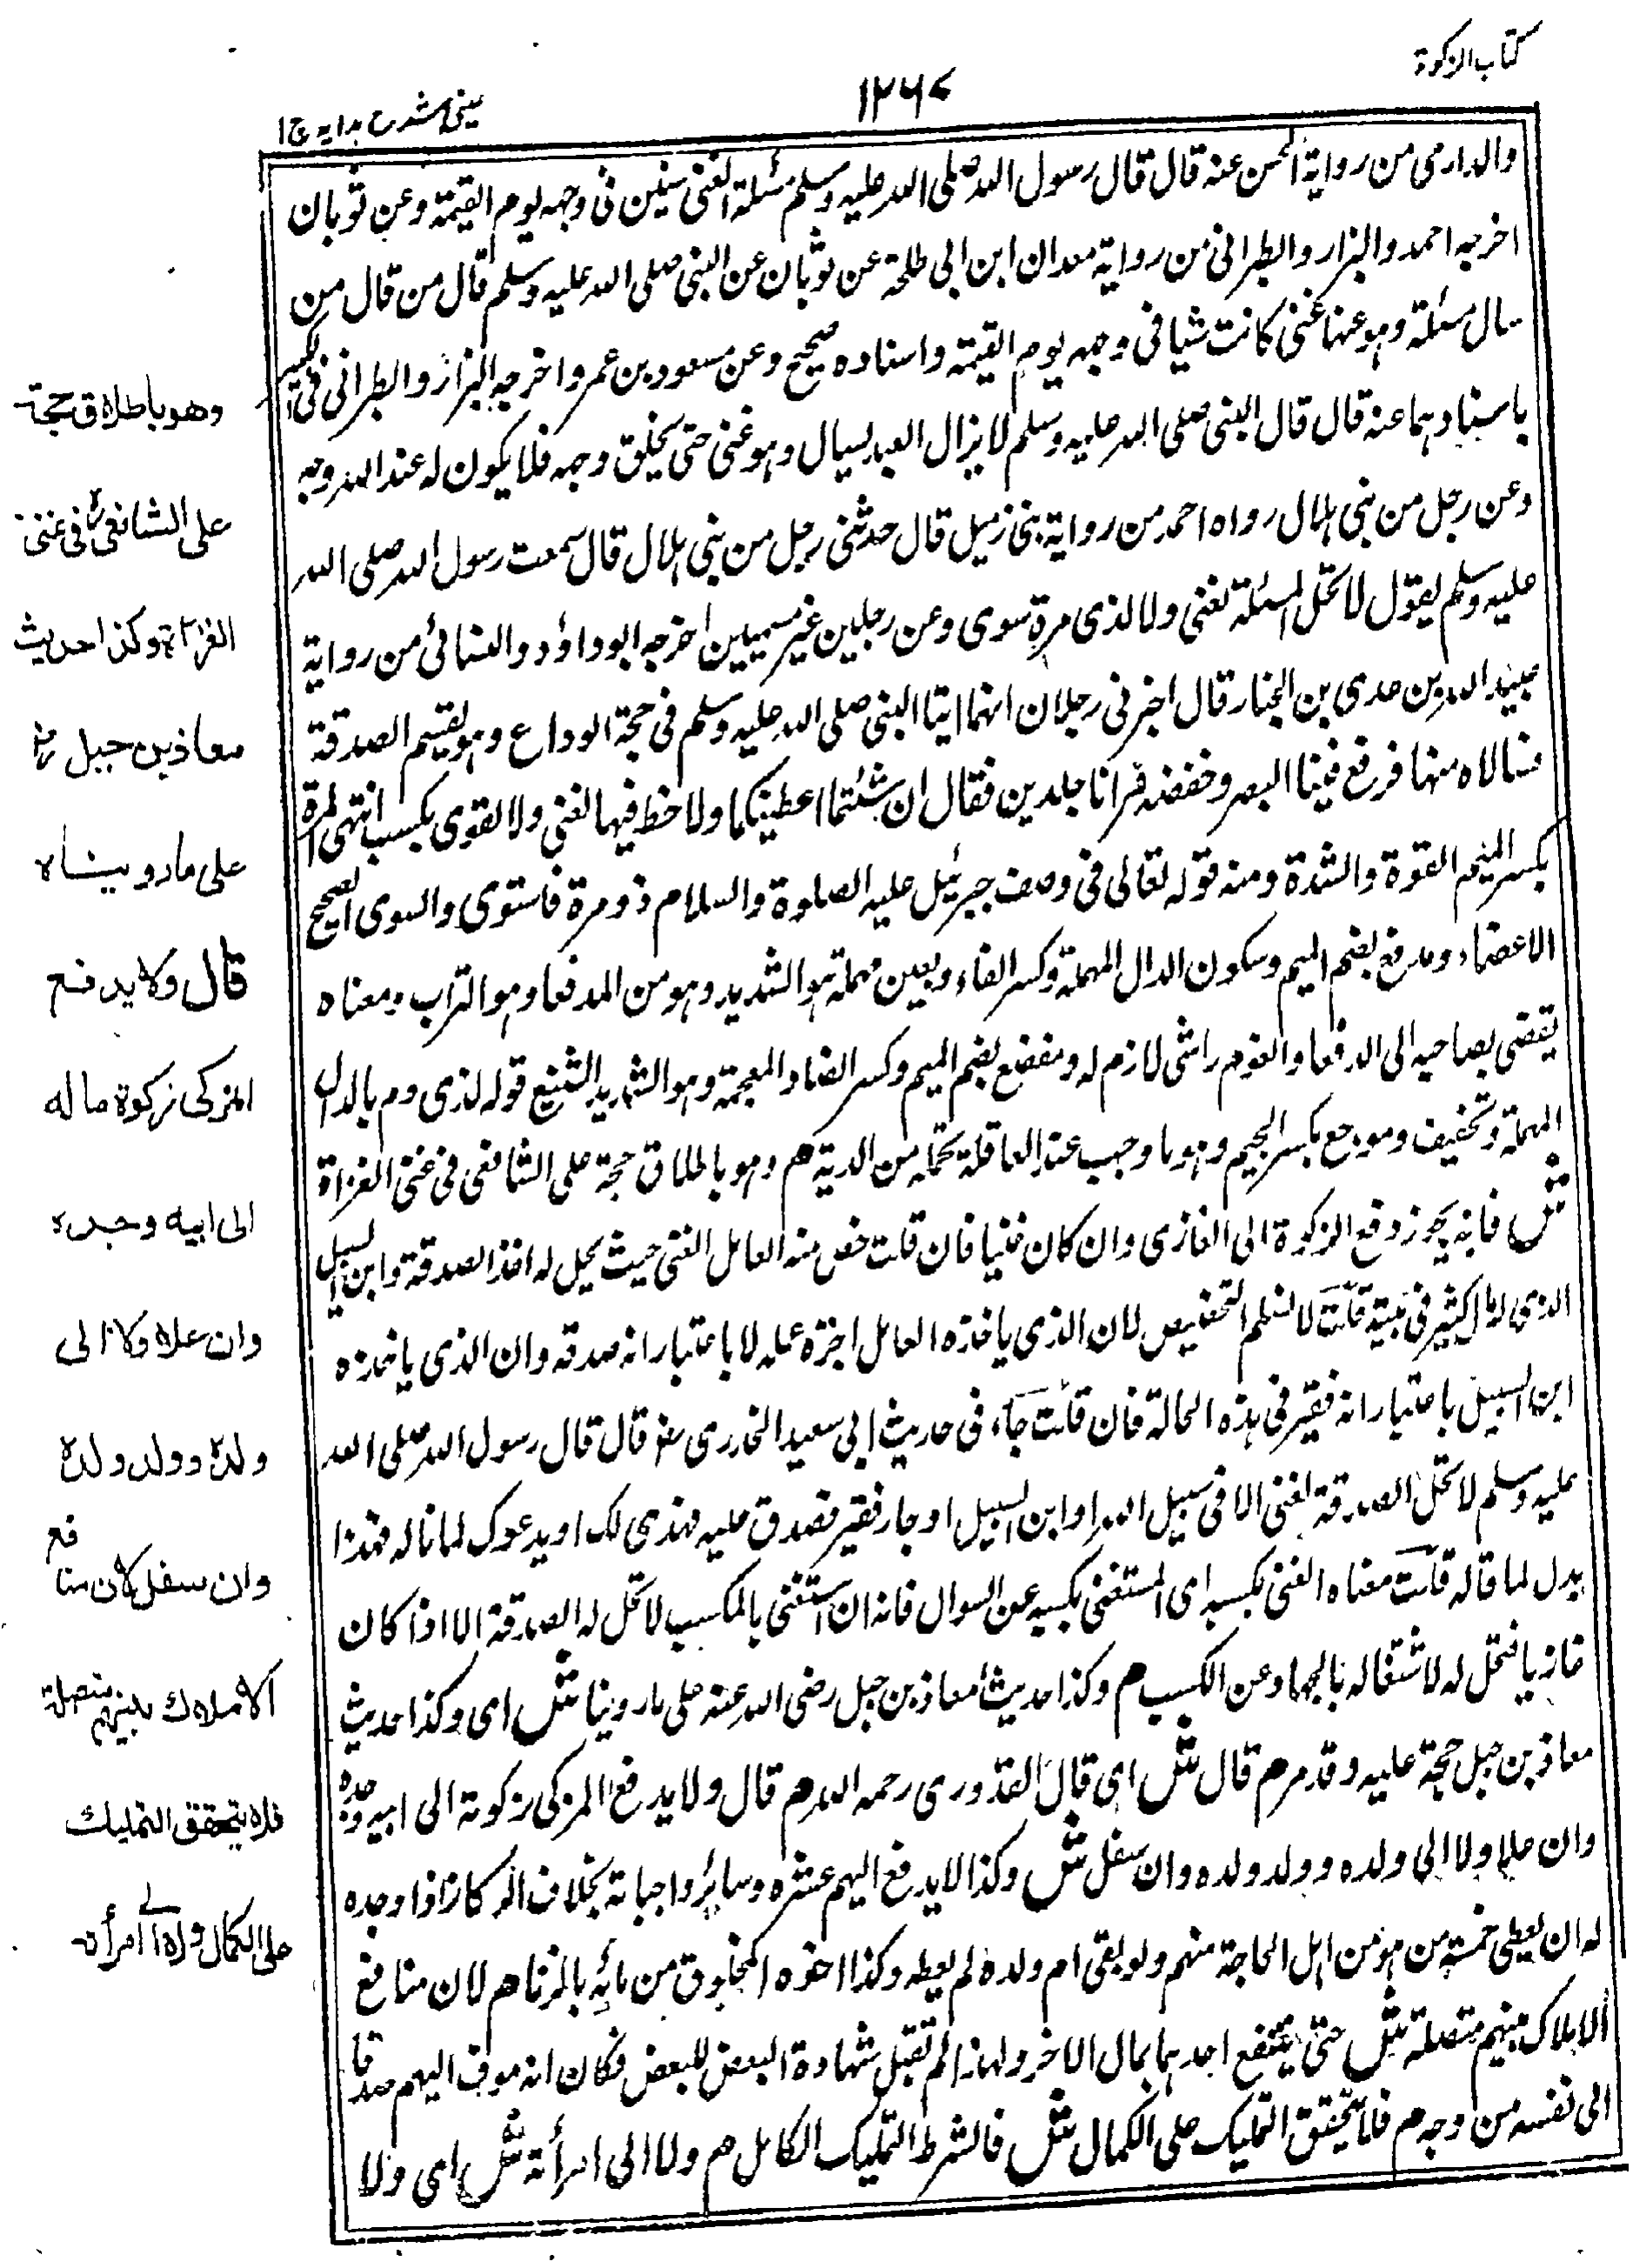 كتاب الزكوة
١٢٦٧
عينى شرح هدايه ج١
والدارمى من رواية الحسن عنه قال قال رسول الله صلى الله عليه وسلم مسئلة الغنى شين فى وجهه يوم القيمة وعن ثوبان
اخرجه احمد والبزار والطبرانى من رواية معدان ابن ابى طلحة عن ثوبان عن النبى صلى الله عليه وسلم قال من قال من
سال مسئلة وهو عنها غنى كانت شيا فى وجهه يوم القيمة واسناده صحيح وعن مسعود بن عمرو اخرجه البزار والطبرانى فى الكبير
باسنادهما عنه قال قال النبى صلى الله عليه وسلم لا يزال العبد يسال وهو غنى حتى يخلق وجهه فلا يكون له عند الله وجه
وعن رجل من بنى هلال رواه احمد من رواية بنى زميل قال حدثنى رجل من بنى هلال قال سمعت رسول الله صلى الله
عليه وسلم يقول لا تحل المسئلة لغنى ولا لذى مرة سوى وعن رجلين غير مسميين اخرجه ابو داؤد والنسائى من رواية
عبيد الله بن عدى بن الخيار قال اخبرنى رجلان انهما اتيا النبى صلى الله عليه وسلم فى حجة الوداع وهو يقسم الصدقة
فسالاه منها فرفع فينا البصر وخفضه فرانا جلدين فقال ان شئتما اعطيتكما ولا حظ فيها لغنى ولا لقوى يكسب انتهى المرة
بكسر الميم القوة والشدة ومنه قوله تعالى فى وصف جبرئيل عليه الصلوة والسلام ذو مرة فاستوى والسوى الصحيح
الاعضاء ومدقع بضم الميم وسكون الدال المهملة وكسر الفاء وبعين مهملة هو الشديد وهو من المدقعا وهو التراب ومعناه
يقضى بصاحبه الى الدقعا والغوم راشى لازم له ومفضع بضم الميم وكسر الضاد المعجمة وهو الشديد الشنيع قوله لذى دم بالدال
المهملة وتخفيف وموجع بكسر الجيم وهو ما وجب عند العاقلة بحمله من الدية هم وهو باطلاق حجة على الشافعى فى غنى الغزاة
ش فانه يجوز دفع الزكوة الى الغازى وان كان غنيا فان قلت خص منه العامل الغنى حيث يحل له اخذ الصدقة وابن السبيل
الذى له مال كثير فى بيته قلت لا نسلم التخصيص لان الذى ياخذه العامل اجرة عمله لا باعتبار انه صدقه وان الذى ياخذه
ابن السبيل باعتبار انه فقير فى هذه الحالة فان قلت جاء فى حديث ابى سعيد الخدرى رضـ قال قال رسول الله صلى الله
عليه وسلم لا تحل الصدقة لغنى الا فى سبيل الله او ابن السبيل او جار فقير فصدق عليه فهذى لك او يدعوك لما ناله فهذا
يدل لما قاله قلت معناه الغنى بكسبه اى المستغنى بكسبه عن السوال فانه ان استغنى بالمكسب لا تحل له الصدقة الا اذا كان
غازيا فتحل له لاشتغاله بالجهاد عن الكسب م وكذا حديث معاذ بن جبل رضى الله عنه على ماروينا ش اى وكذا حديث
معاذ بن جبل حجة عليه وقد مر م قال ش اى قال القدورى رحمه الله م قال ولا يدفع المزكى زكوته الى ابيه وجده
وان علا ولا الى ولده وولد ولده وان سفل ش وكذا لا يدفع اليهم عشره وسائر واجباته بخلاف الركاز اذا وجده
له ان يعطى خمسة من هو من اهل الحاجة منهم ولو بقى ام ولده لم يعطه وكذا اخوه المخلوق من مائه بالزنا هم لان منافع
الاملاك بينهم متصلة ش حتى ينتفع احدهما بمال الاخر ولهذا لم تقبل شهادة البعض للبعض فكان انه موف اليهم صدقا
الى نفسه من وجه م فلا يتحقق التمليك على الكمال ش فالشرط التمليك الكامل هم ولا الى امرأته ش اى ولا
وهو باطلاق حجة
على الشافعى ؒ فى غنى
الغزاة وكذا حديث
معاذ بن جبل رضـ
على مارويناه
قال ولا يدفع
المزكى زكوة ماله
الى ابيه وجده
وان علا ولا الى
ولده وولد ولده
وان سفل لان منافع
الاملاك بينهم متصلة
فلا يتحقق التمليك
على الكمال ولا الى امرأته